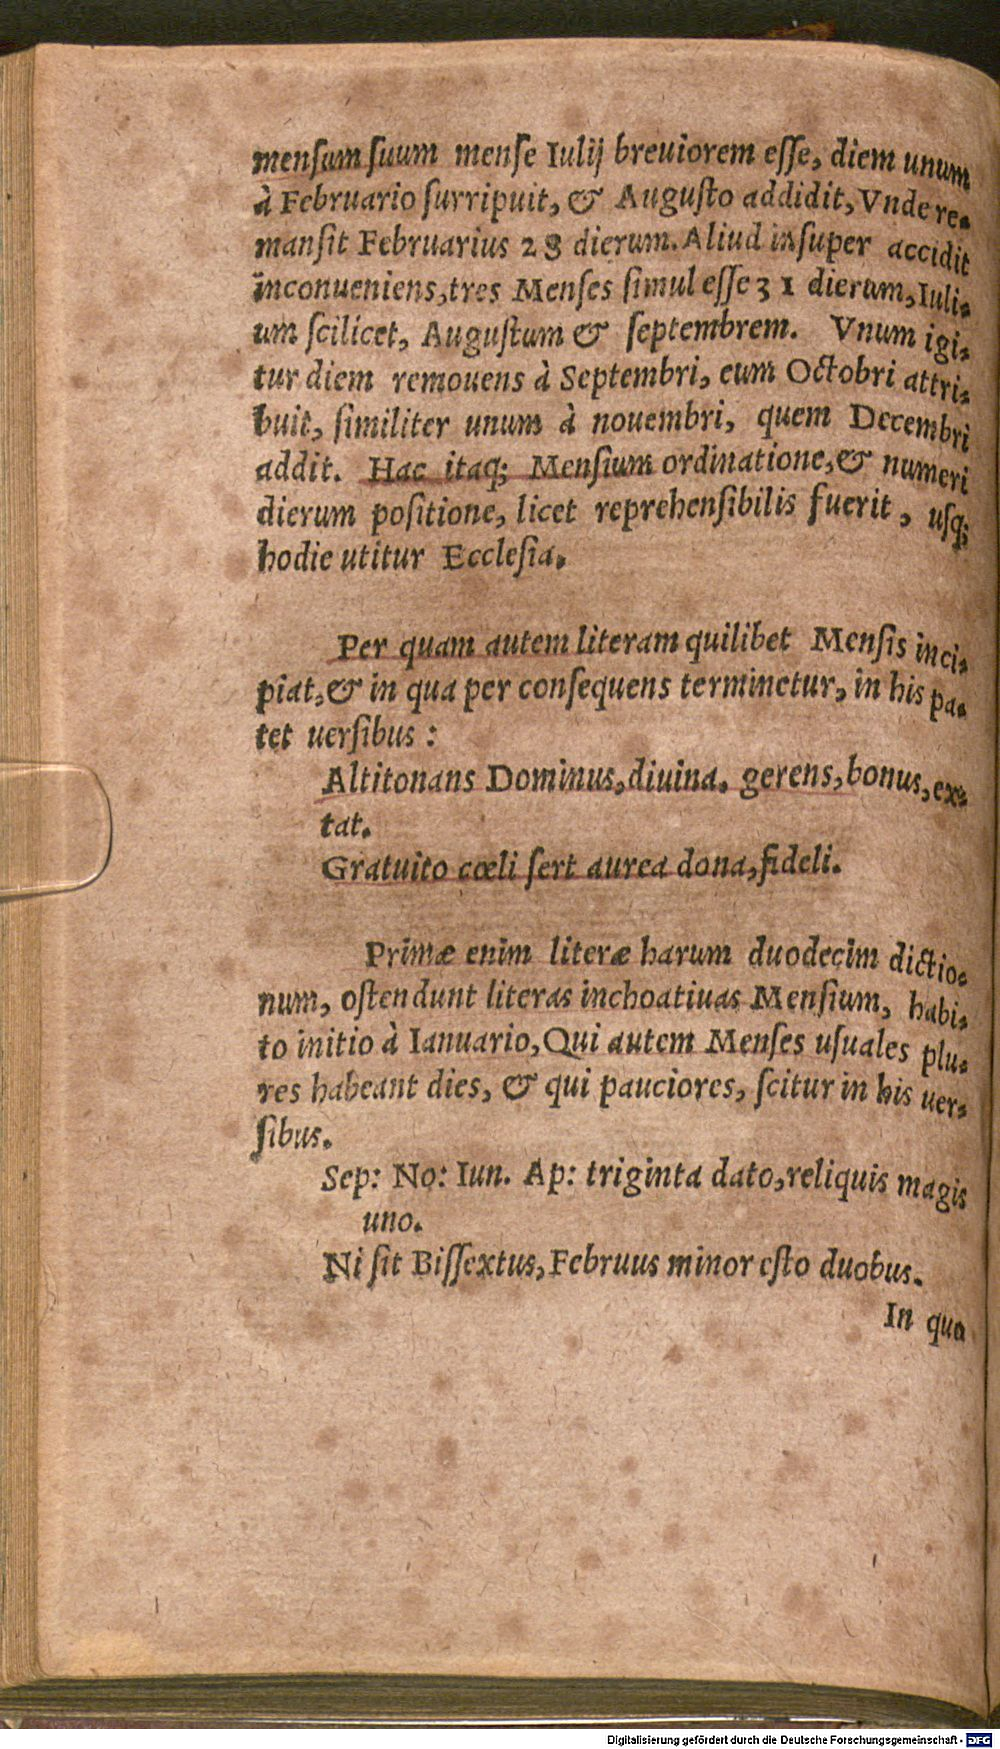 mensum suum mense Iulij breuiorem esse, diem unum
à Februario surripuit, & Augusto addidit, Vnde re-
mansit Februarius 28 dierum. Aliud insuper accidit
inconueniens, tres Menses simul esse 31 dierum, Iuli-
um scilicet, Augustum & septembrem. Vnum igi-
tur diem remouens à Septembri, eum Octobri attri-
buit, similiter unum à nouembri, quem Decembri
addit. Hac itaq; Mensium ordinatione, & numeri
dierum positione, licet reprehensibilis fuerit, usq;
hodie utitur Ecclesia.
Per quam autem literam quilibet Mensis inci-
piat, & in qua per consequens terminetur, in his pa-
tet uersibus:
Altitonans Dominus, diuina. gerens, bonus, ex-
tat.
Gratuito cœli fert aurea dona, fideli.
Primæ enim literæ harum duodecim dictio-
num, ostendunt literas inchoatiuas Mensium, habi-
to initio à Ianuario, Qui autem Menses usuales plu-
res habeant dies, & qui pauciores, scitur in his uer-
sibus.
Sep: No: Iun. Ap: triginta dato, reliquis magis
uno.
Ni sit Bissextus, Februus minor esto duobus.
In qua
Digitalisierung gefördert durch die Deutsche Forschungsgemeinschaft - DFG